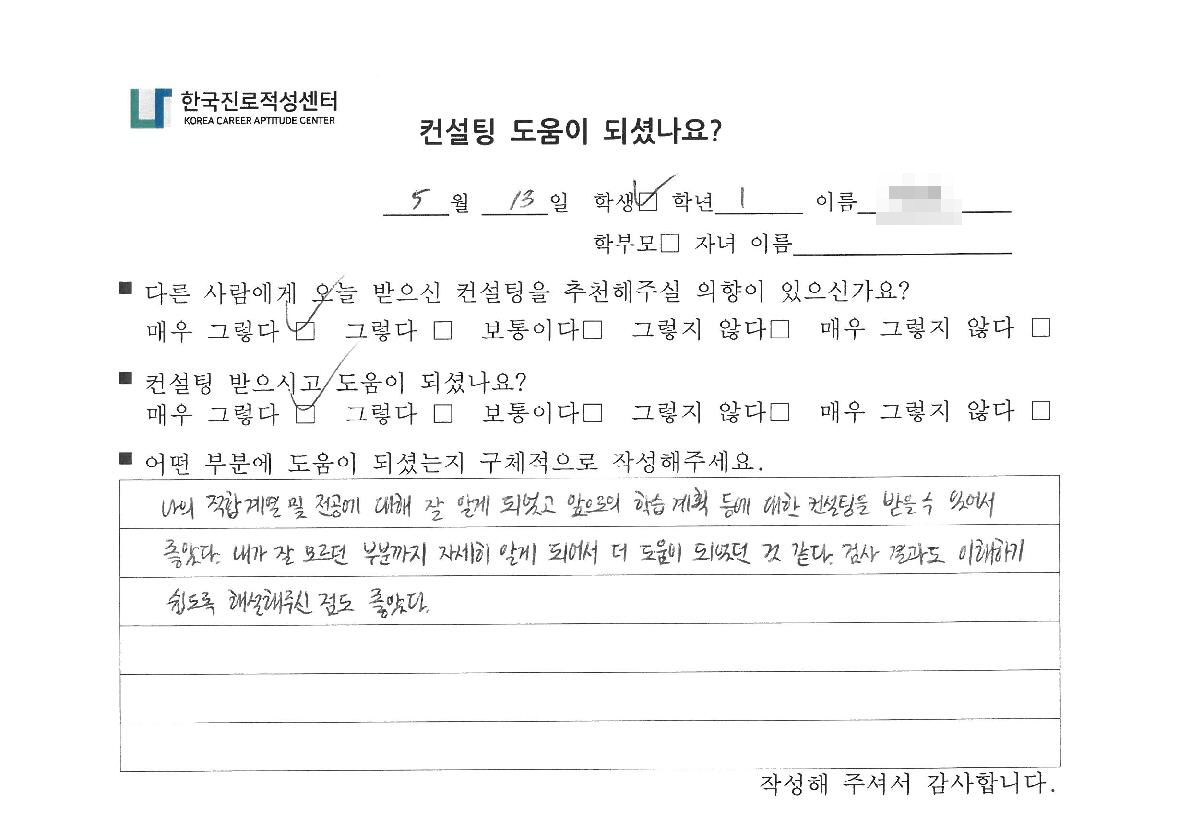 한국진로적성센터
KOREA CAREER APTITUDE CENTER
컨설팅 도움이 되셨나요?
5 월 13 일 학생☑ 학년 1 이름
학부모□ 자녀 이름
■ 다른 사람에게 오늘 받으신 컨설팅을 추천해주실 의향이 있으신가요?
매우 그렇다 ☑ 그렇다 □ 보통이다□ 그렇지 않다□ 매우 그렇지 않다 □
■ 컨설팅 받으시고 도움이 되셨나요?
매우 그렇다 ☑ 그렇다 □ 보통이다□ 그렇지 않다□ 매우 그렇지 않다 □
■ 어떤 부분에 도움이 되셨는지 구체적으로 작성해주세요.
나의 적합계열 및 전공에 대해 잘 알게 되었고 앞으로의 학습 계획 등에 대한 컨설팅을 받을 수 있어서
좋았다. 내가 잘 모르던 부분까지 자세히 알게 되어서 더 도움이 되었던 것 같다. 검사 결과도 이해하기
쉽도록 해설해주신 점도 좋았다.
작성해 주셔서 감사합니다.